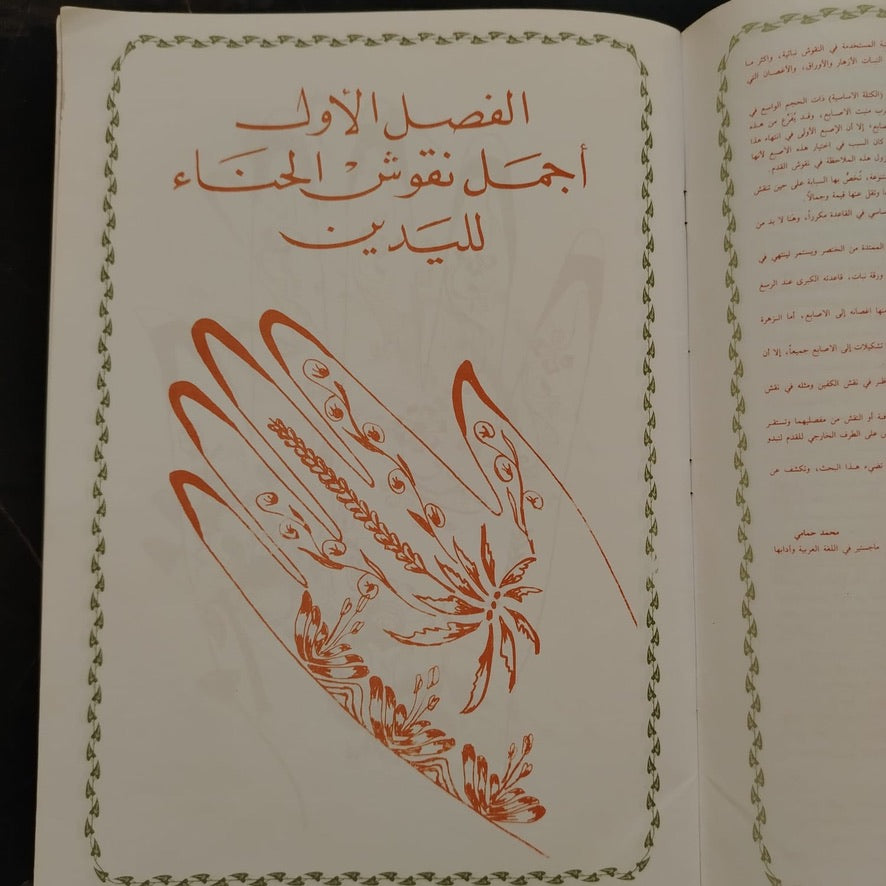 ية المستخدمة في النقوش نباتية، واكثر ما
النبات الأزهار والأوراق، والأغصان التي
(الكتلة الاساسية) ذات الحجم الواسع في
رب منبت الاصابع، وقد يُفرَّع من هذه
ابع، إلا أن الإصبع الأولى في انتهاء هذا
كان السبب في اختيار هذه الاصبع لأنها
زول هذه الملاحظة في نقوش القدم.
متنوعة، تُخصُّ بها السبابة على حين تنقش
وتقل عنها قيمة وجمالاً.
اسي في القاعدة مكرراً، وهنا لا بد من
الممتدة من الخنصر ويستمر لينتهي في
ورقة نبات، قاعدته الكبرى عند الرسغ
منها اغصانه إلى الاصابع، أما الزهرة
تشكيلات إلى الاصابع جميعاً، إلا أن
نظر في نقش الكفين ومثله في نقش
ة أو النقش من مفصليهما وتستقر
على الطرف الخارجي للقدم لتبدو
تضيء هذا البحث، وتكشف عن
محمد حمامي
ماجستير في اللغة العربية وآدابها
الفصل الأول
أجمل نقوش الحناء
لليدين